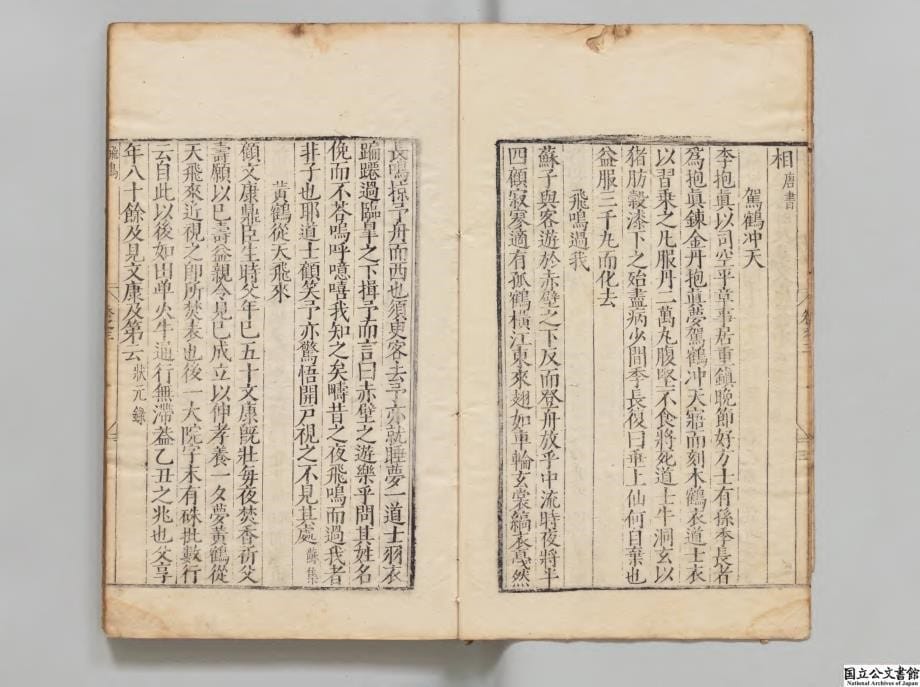 相 唐書
駕鶴冲天
李抱眞以司空平章事居重鎮晚節好方士有孫季長者
爲抱眞鍊金丹抱眞夢駕鶴冲天寤而刻木鶴衣道士衣
以習乘之凡服丹二萬丸腹堅不食將死道士牛洞玄以
猪肪穀漆下之殆盡病少間季長復曰垂上仙何自棄也
益服三千丸而化去
飛鳴過我
蘇子與客遊於赤壁之下反而登舟放乎中流時夜將半
四顧寂寥適有孤鶴橫江東來翅如車輪玄裳縞衣戛然
長鳴掠予舟而西也須臾客去予亦就睡夢一道士羽衣
蹁躚過臨皐之下揖予而言曰赤壁之遊樂乎問其姓名
俛而不答嗚呼噫嘻我知之矣疇昔之夜飛鳴而過我者
非子也耶道士顧笑予亦驚悟開戸視之不見其處 蘇集
黃鶴從天飛來
顧文康鼎臣生時父年已五十文康旣壯每夜焚香祈父
壽願以已壽益親令見已成立以伸孝養一夕夢黃鶴從
天飛來近視之卽所焚表也後一大院字末有硃批數行
云自此以後如田单火牛通行無滯葢乙丑之兆也父享
年八十餘及見文康及第云 狀元錄
国立公文書館
National Archives of Japan